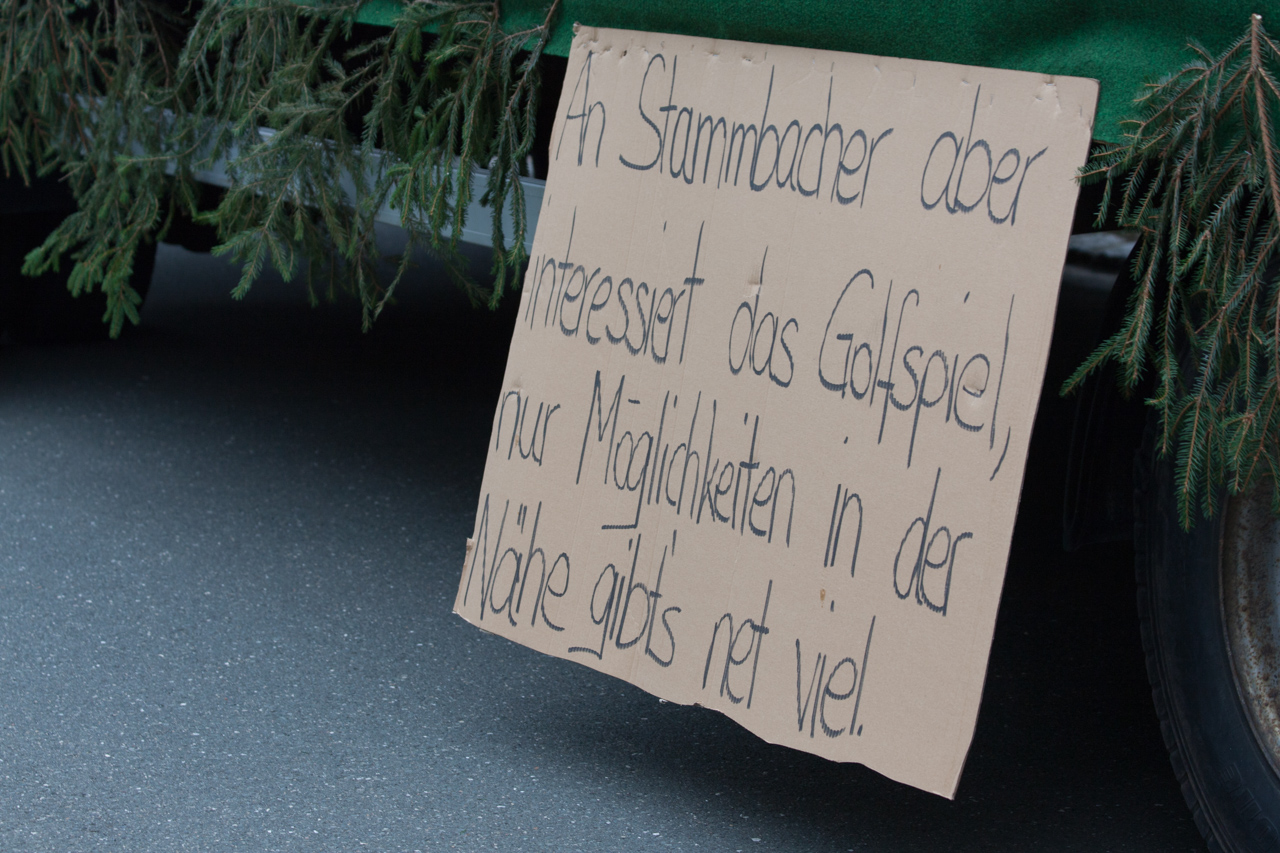 An Stammbacher aber
interessiert das Golfspiel,
nur Möglichkeiten in der
Nähe gibt's net viel.